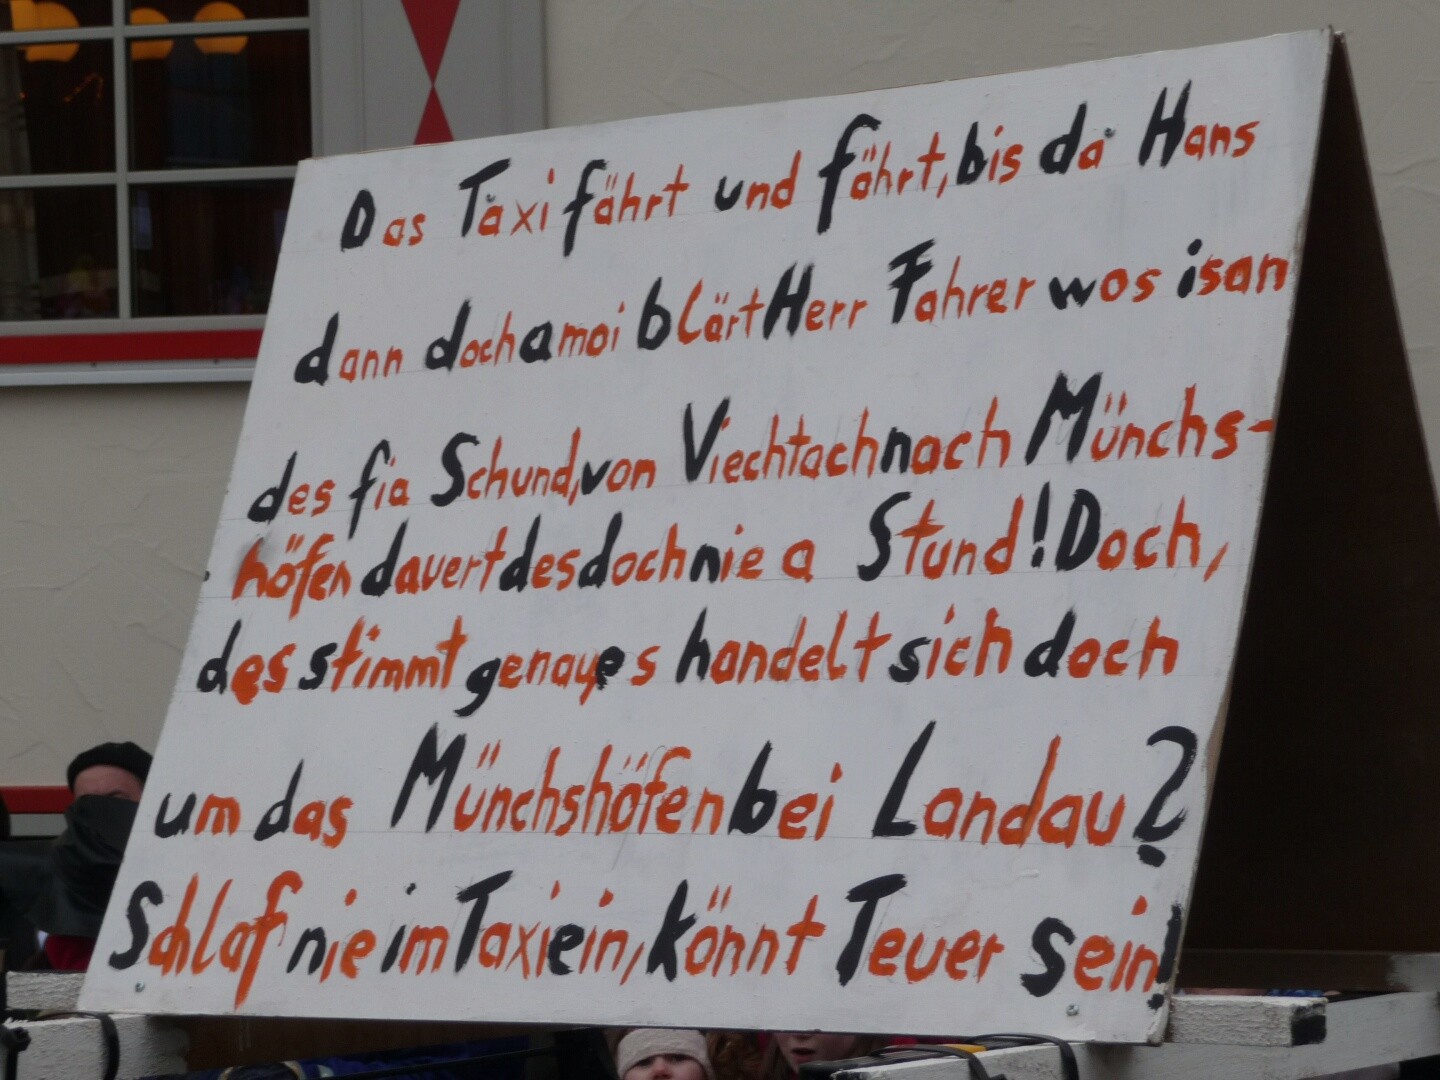 Das Taxi fährt und fährt, bis da Hans
dann doch amoi blärt Herr Fahrer wos is an
des fia Schund, von Viechtach nach Münchs-
höfen dauert des doch nie a Stund! Doch,
des stimmt genau es handelt sich doch
um das Münchshöfen bei Landau?
Schlaf nie im Taxi ein, könnt Teuer sein!